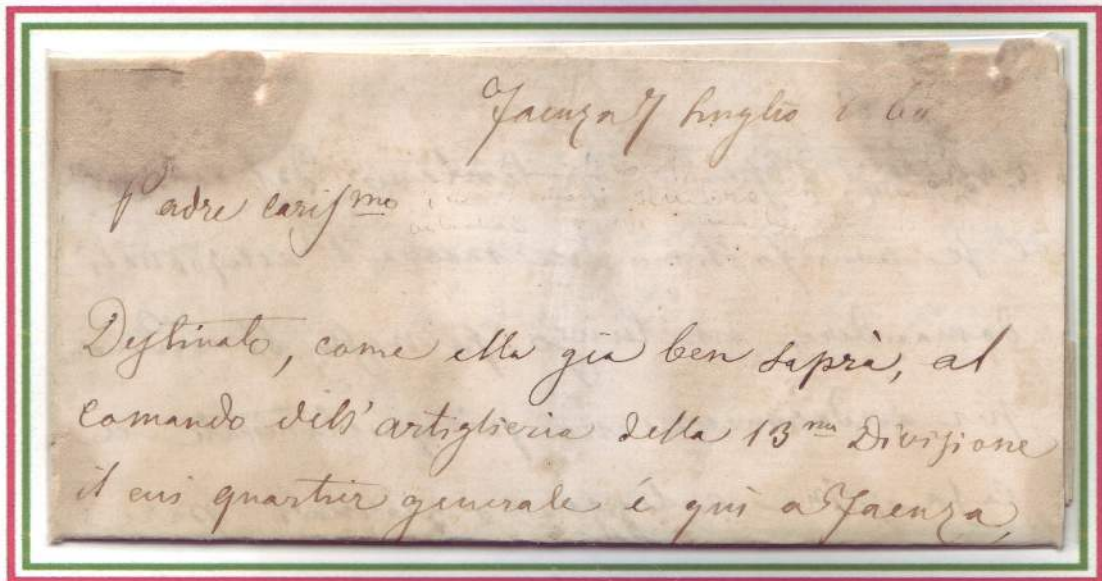 Faenza 7 Luglio 60
Padre cariſ.mo
Deſtinato, come ella già ben saprà, al
comando dell'artiglieria della 13ma Diviſione
il cui quartier generale é quì a Faenza,